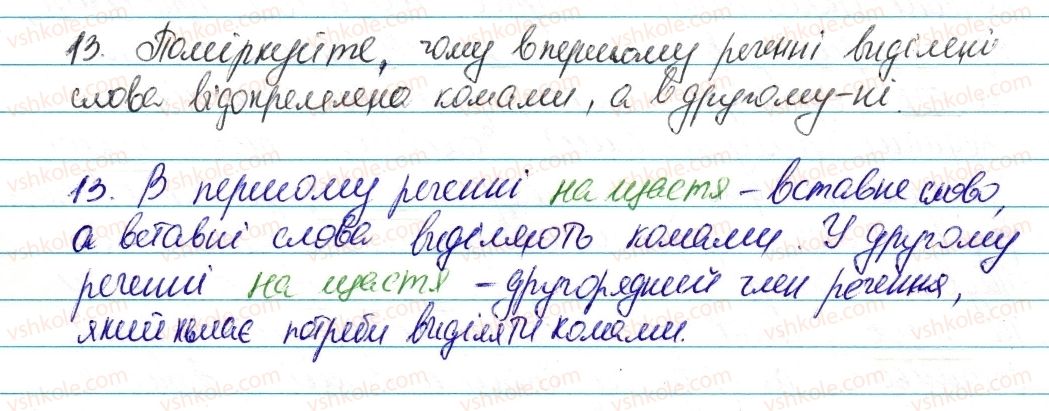 13. Поміркуйте, чому в першому реченні виділені
слова відокремлено комами, а в другому-ні.
13. В першому реченні на щастя - вставне слово,
а вставні слова виділяють комами. У другому
реченні на щастя - другорядний член речення,
який немає потреби виділяти комами.